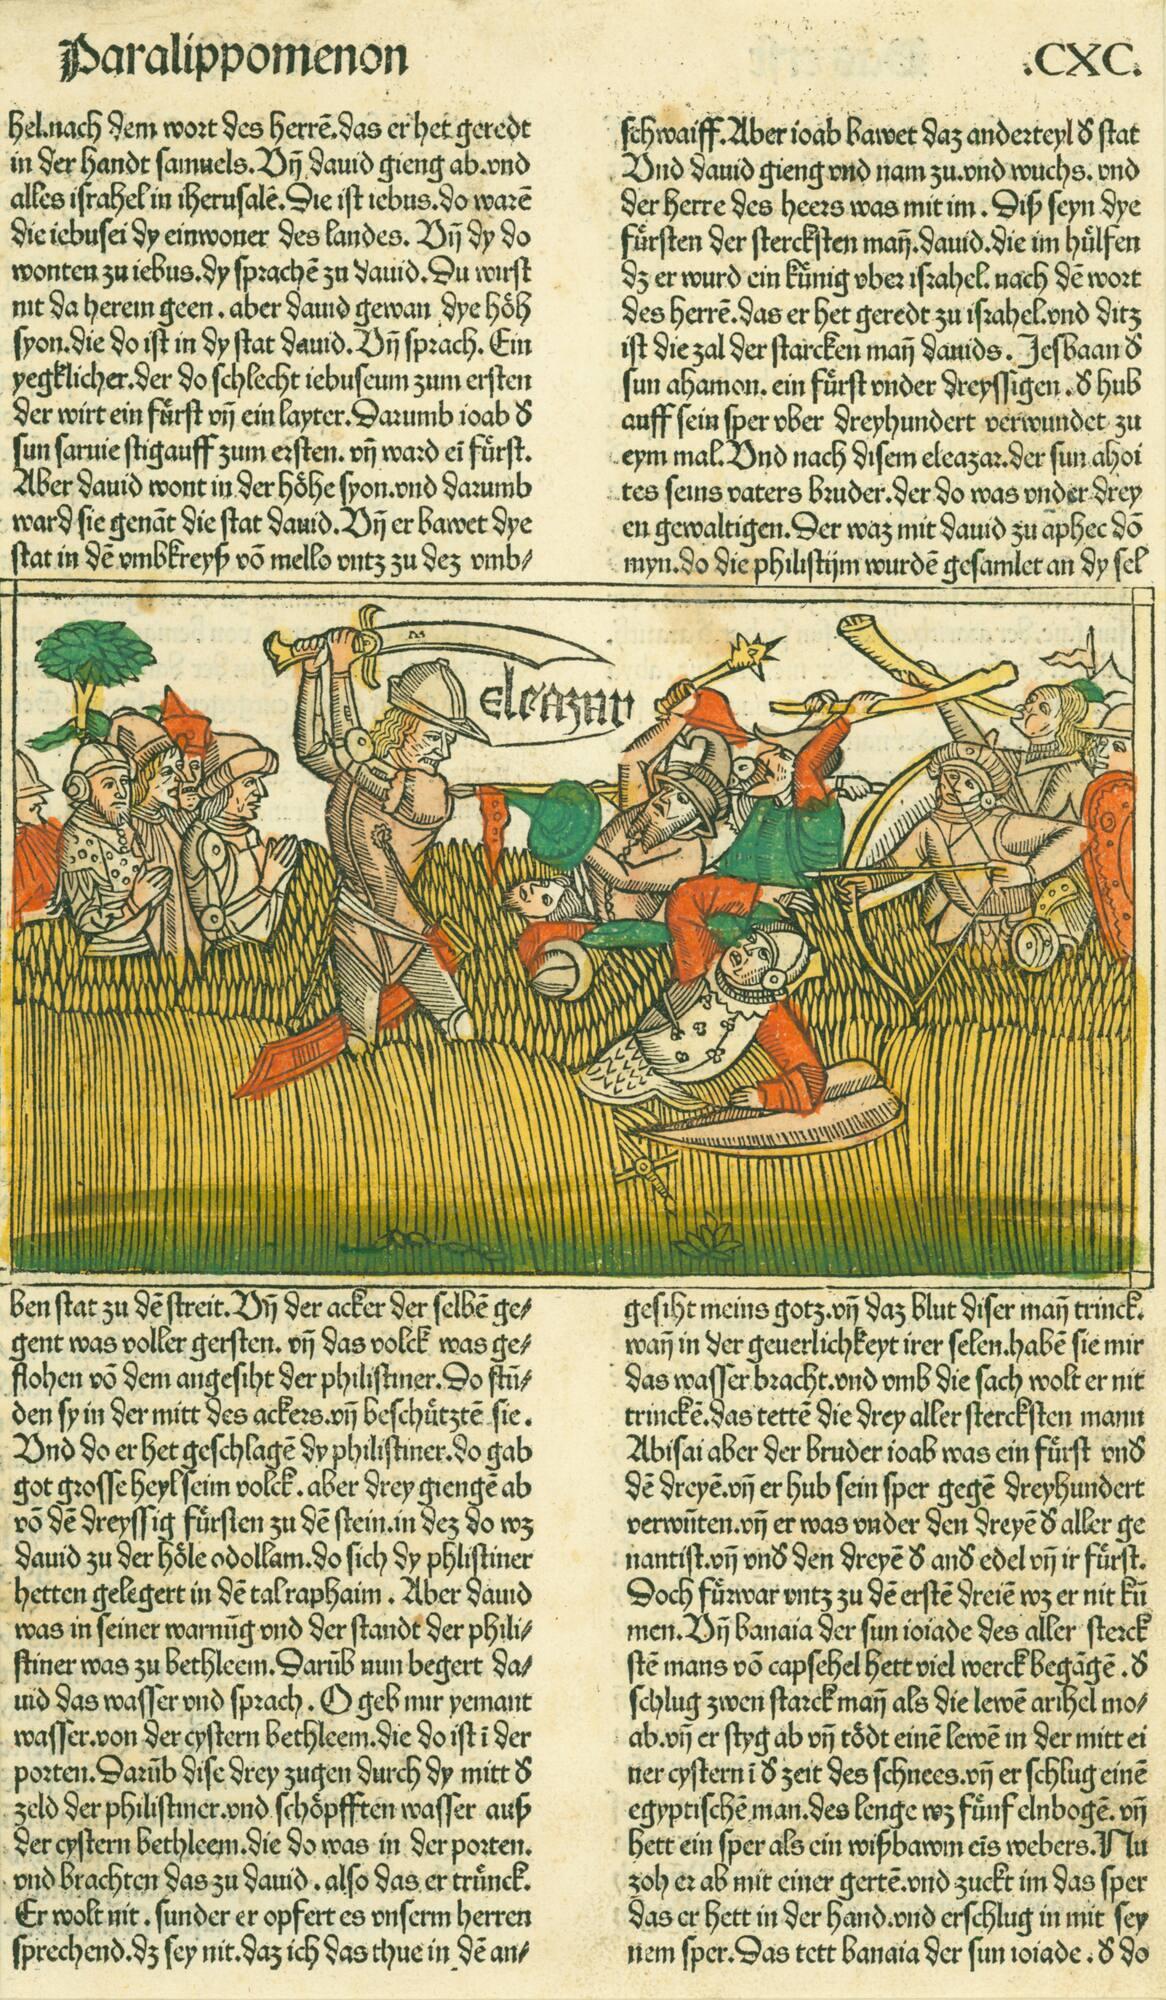 Paralippomenon
.CXC.
hel.nach dem wort des herrē.das er het geredt
in der handt samuels.Vñ dauid gieng ab.vnd
alles israhel in iherusalē.Die ist iebus.do warē
die iebusei dy einwoner des landes. Vñ dy do
wonten zu iebus.dy sprachē zu dauid.Du wirst
nit da herein geen . aber dauid gewan dye hoͤh
syon.die do ist in dy stat dauid.Vñ sprach. Ein
yegklicher.der do schlecht iebuseum zum ersten
der wirt ein fuͤrst vñ ein layter.Darumb ioab δ
sun saruie stig auff zum ersten. vñ ward eī fuͤrst.
Aber dauid wont in der hoͤhe syon.vnd darumb
ward sie genāt die stat dauid.Vñ er bawet dye
stat in dē vmbkreyß vō mello vntz zu dez vmb⸗
schwaiff.Aber ioab bawet daz anderteyl δ stat
Vnd dauid gieng vnd nam zu.vnd wuchs. vnd
der herre des heers was mit im . Diß seyn dye
fuͤrsten der stercksten mañ.dauid.die im huͤlfen
dz er wurd ein kuͤnig vber israhel. nach dē wort
des herrē.das er het geredt zu israhel.vnd ditz
ist die zal der starcken mañ dauids . Jesbaan δ
sun ahamon. ein fuͤrst vnder dreyssigen . δ hub
auff sein sper vber dreyhundert verwundet zu
eym mal.Vnd nach disem eleazar.der sun ahoi
tes seins vaters bruder.der do was vnder drey
en gewaltigen.Der waz mit dauid zu aphec dō
myn.do die philistijm wurdē gesamlet an dy sel
eleazar
ben stat zu dē streit.Vñ der acker der selbē ge⸗
gent was voller gersten. vñ das volck was ge⸗
flohen vō dem angesiht der philistiner.Do stū⸗
den sy in der mitt des ackers.vñ beschuͤtztē sie .
Vnd do er het geschlagē dy philistiner.do gab
got grosse heyl seim volck . aber drey giengē ab
vō dē dreyssig fuͤrsten zu dē stein.in dez do wz
dauid zu der hoͤle odollam.do sich dy phlistiner
hetten gelegert in dē tal raphaim . Aber dauid
was in seiner warnūg vnd der standt der phili⸗
stiner was zu bethleem.Darūb nun begert da⸗
uid das wasser vnd sprach . O geb mir yemant
wasser.von der cystern bethleem.die do ist ī der
porten.Darūb dise drey zugen durch dy mitt δ
zeld der philistiner.vnd schoͤpfften wasser auß
der cystern bethleem.die do was in der porten.
vnd brachten das zu dauid . also das er truͤnck.
Er wolt nit . sunder er opfert es vnserm herren
sprechend.dz sey nit.daz ich das thue in dē an⸗
gesiht meins gotz.vñ daz blut diser mañ trinck.
wañ in der geuerlichkeyt irer selen.habē sie mir
das wasser bracht.vnd vmb die sach wolt er nit
trinckē.das tettē die drey aller stercksten mann
Abisai aber der bruder ioab was ein fuͤrst vnδ
dē dreyē.vñ er hub sein sper gegē dreyhundert
verwūten.vñ er was vnder den dreyē δ aller ge
nantist.vñ vnδ den dreyē δ anδ edel vñ ir fuͤrst.
Doch fuͤrwar vntz zu dē erstē dreiē wz er nit kū
men.Vñ banaia der sun ioiade des aller sterck
stē mans vō capsehel hett viel werck begāgē . δ
schlug zwen starck mañ als die lewē arihel mo⸗
ab.vñ er styg ab vñ toͤdt einē lewē in der mitt ei
ner cystern ī δ zeit des schnees.vñ er schlug einē
egyptischē man.des lenge wz fuͤnf elnbogē. vñ
hett ein sper als ein wißbawm eīs webers.Nu
zoh er ab mit einer gertē.vnd zuckt im das sper
das er hett in der hand.vnd erschlug in mit sey
nem sper.Das tett banaia der sun ioiade . δ do